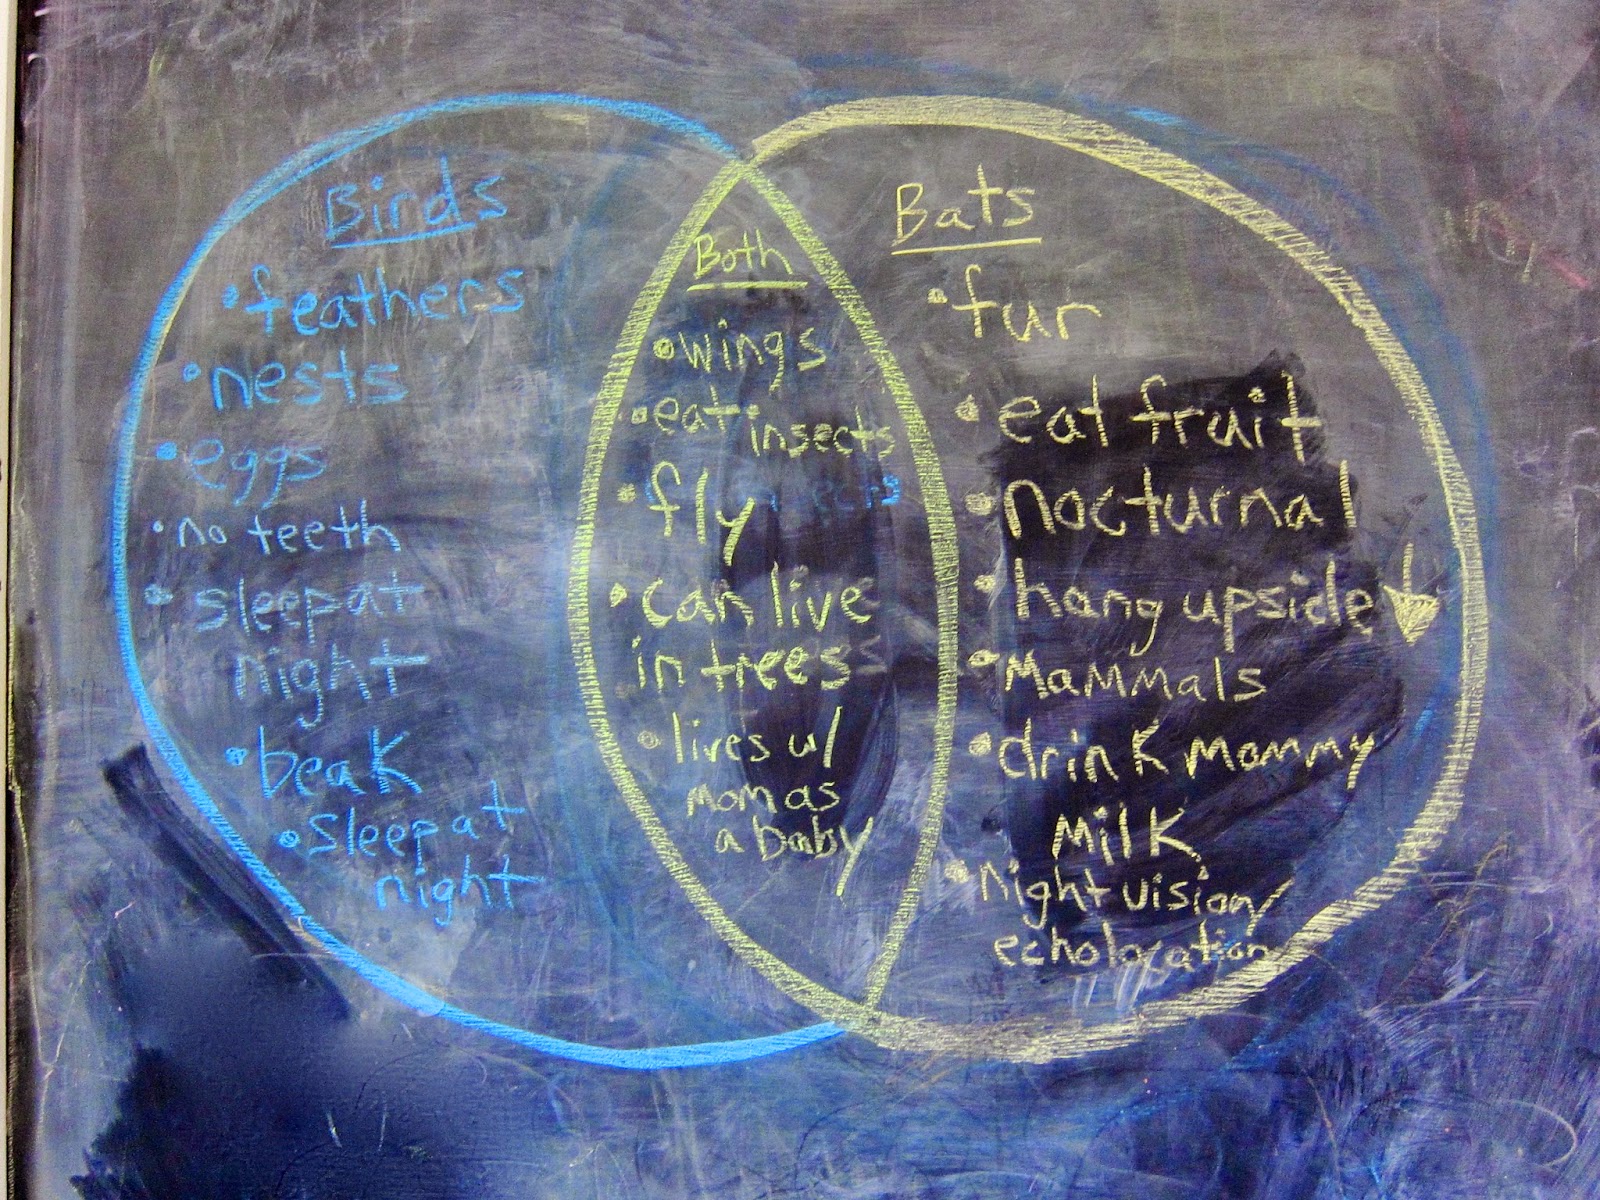 Birds
• feathers
• nests
• eggs
• no teeth
• sleep at
night
• beak
• sleep at
night
Both
• wings
• eat insects
• fly
• can live
in trees
• lives w/
mom as
a baby
Bats
• fur
• eat fruit
• nocturnal
• hang upside
• Mammals
• drink Mommy
Milk
• night vision/
echolocation